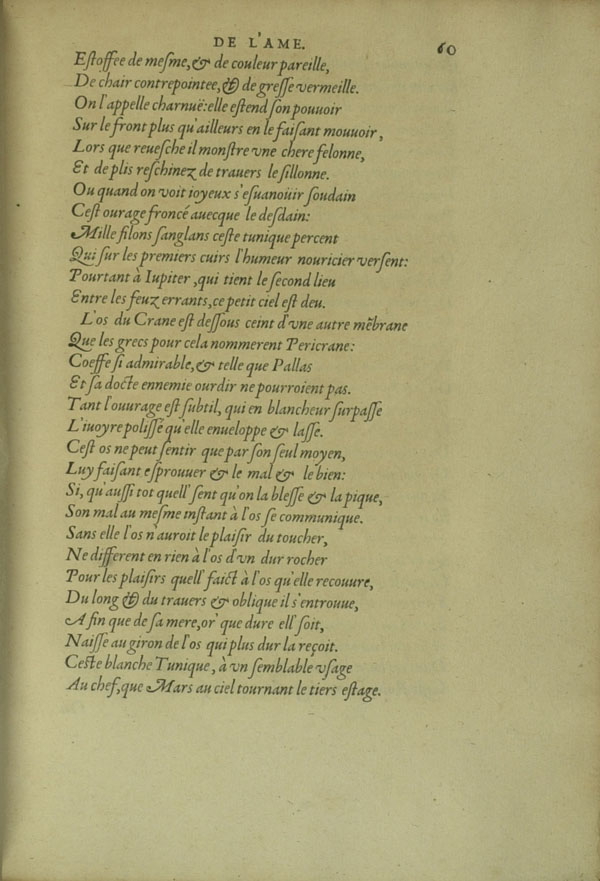 DE L'AME. 60
Eſtoffee de meſme, & de couleur pareille,
De chair contrepointee, & de greſſe vermeille.
On l'appelle charnuë: elle eſtend ſon pouuoir
Sur le front plus qu'ailleurs en le faiſant mouuoir,
Lors que reueſche il monſtre vne chere felonne,
Et de plis reſchinez de trauers le ſillonne.
Ou quand on voit ioyeux s'eſuanoüir ſoudain
Ceſt ourage froncé auecque le deſdain:
Mille filons ſanglans ceſte tunique percent
Qui ſur les premiers cuirs l'humeur nouricier verſent:
Pourtant à Iupiter, qui tient le ſecond lieu
Entre les feuz errants, ce petit ciel eſt deu.
L'os du Crane eſt deſſous ceint d'vne autre mẽbrane
Que les grecs pour cela nommerent Pericrane:
Coeffe ſi admirable, & telle que Pallas
Et ſa docte ennemie ourdir ne pourroient pas.
Tant l'ouurage eſt ſubtil, qui en blancheur ſurpaſſe
L'iuoyre poliſſé qu'elle enueloppe & laſſe.
Ceſt os ne peut ſentir que par ſon ſeul moyen,
Luy faiſant eſprouuer & le mal & le bien:
Si, qu'auſſi tot quell' ſent qu'on la bleſſe & la pique,
Son mal au meſme inſtant à l'os ſe communique.
Sans elle l'os n'auroit le plaiſir du toucher,
Ne different en rien à l'os d'vn dur rocher
Pour les plaiſirs quell' faict à l'os qu'elle recouure,
Du long & du trauers & oblique il s'entrouue,
A fin que de ſa mere, or' que dure ell' ſoit,
Naiſſe au giron de l'os qui plus dur la reçoit.
Ceſte blanche Tunique, à vn ſemblable vſage
Au chef, que Mars au ciel tournant le tiers eſtage.